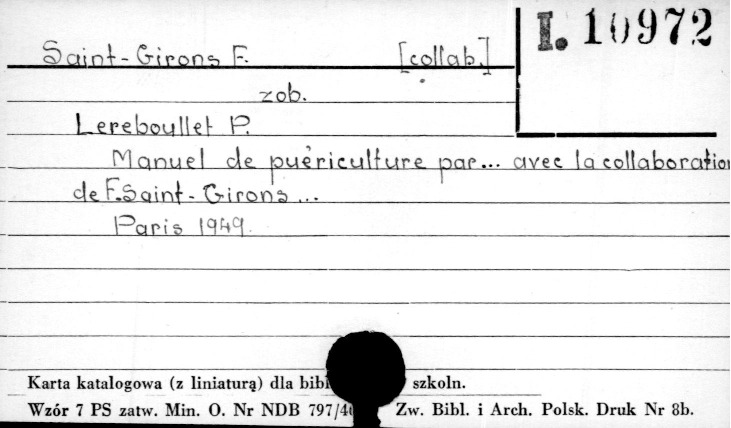 I. 10972
Saint-Girons F. [collab.]
zob.
Lereboullet P.
Manuel de puériculture par... avec la collaboration
de F. Saint-Girons...
Paris 1949.
Karta katalogowa (z liniaturą) dla szkoln.
Wzór 7 PS zatw. Min. O. Nr NDB Zw. Bibl. i Arch. Polsk. Druk Nr 8b.